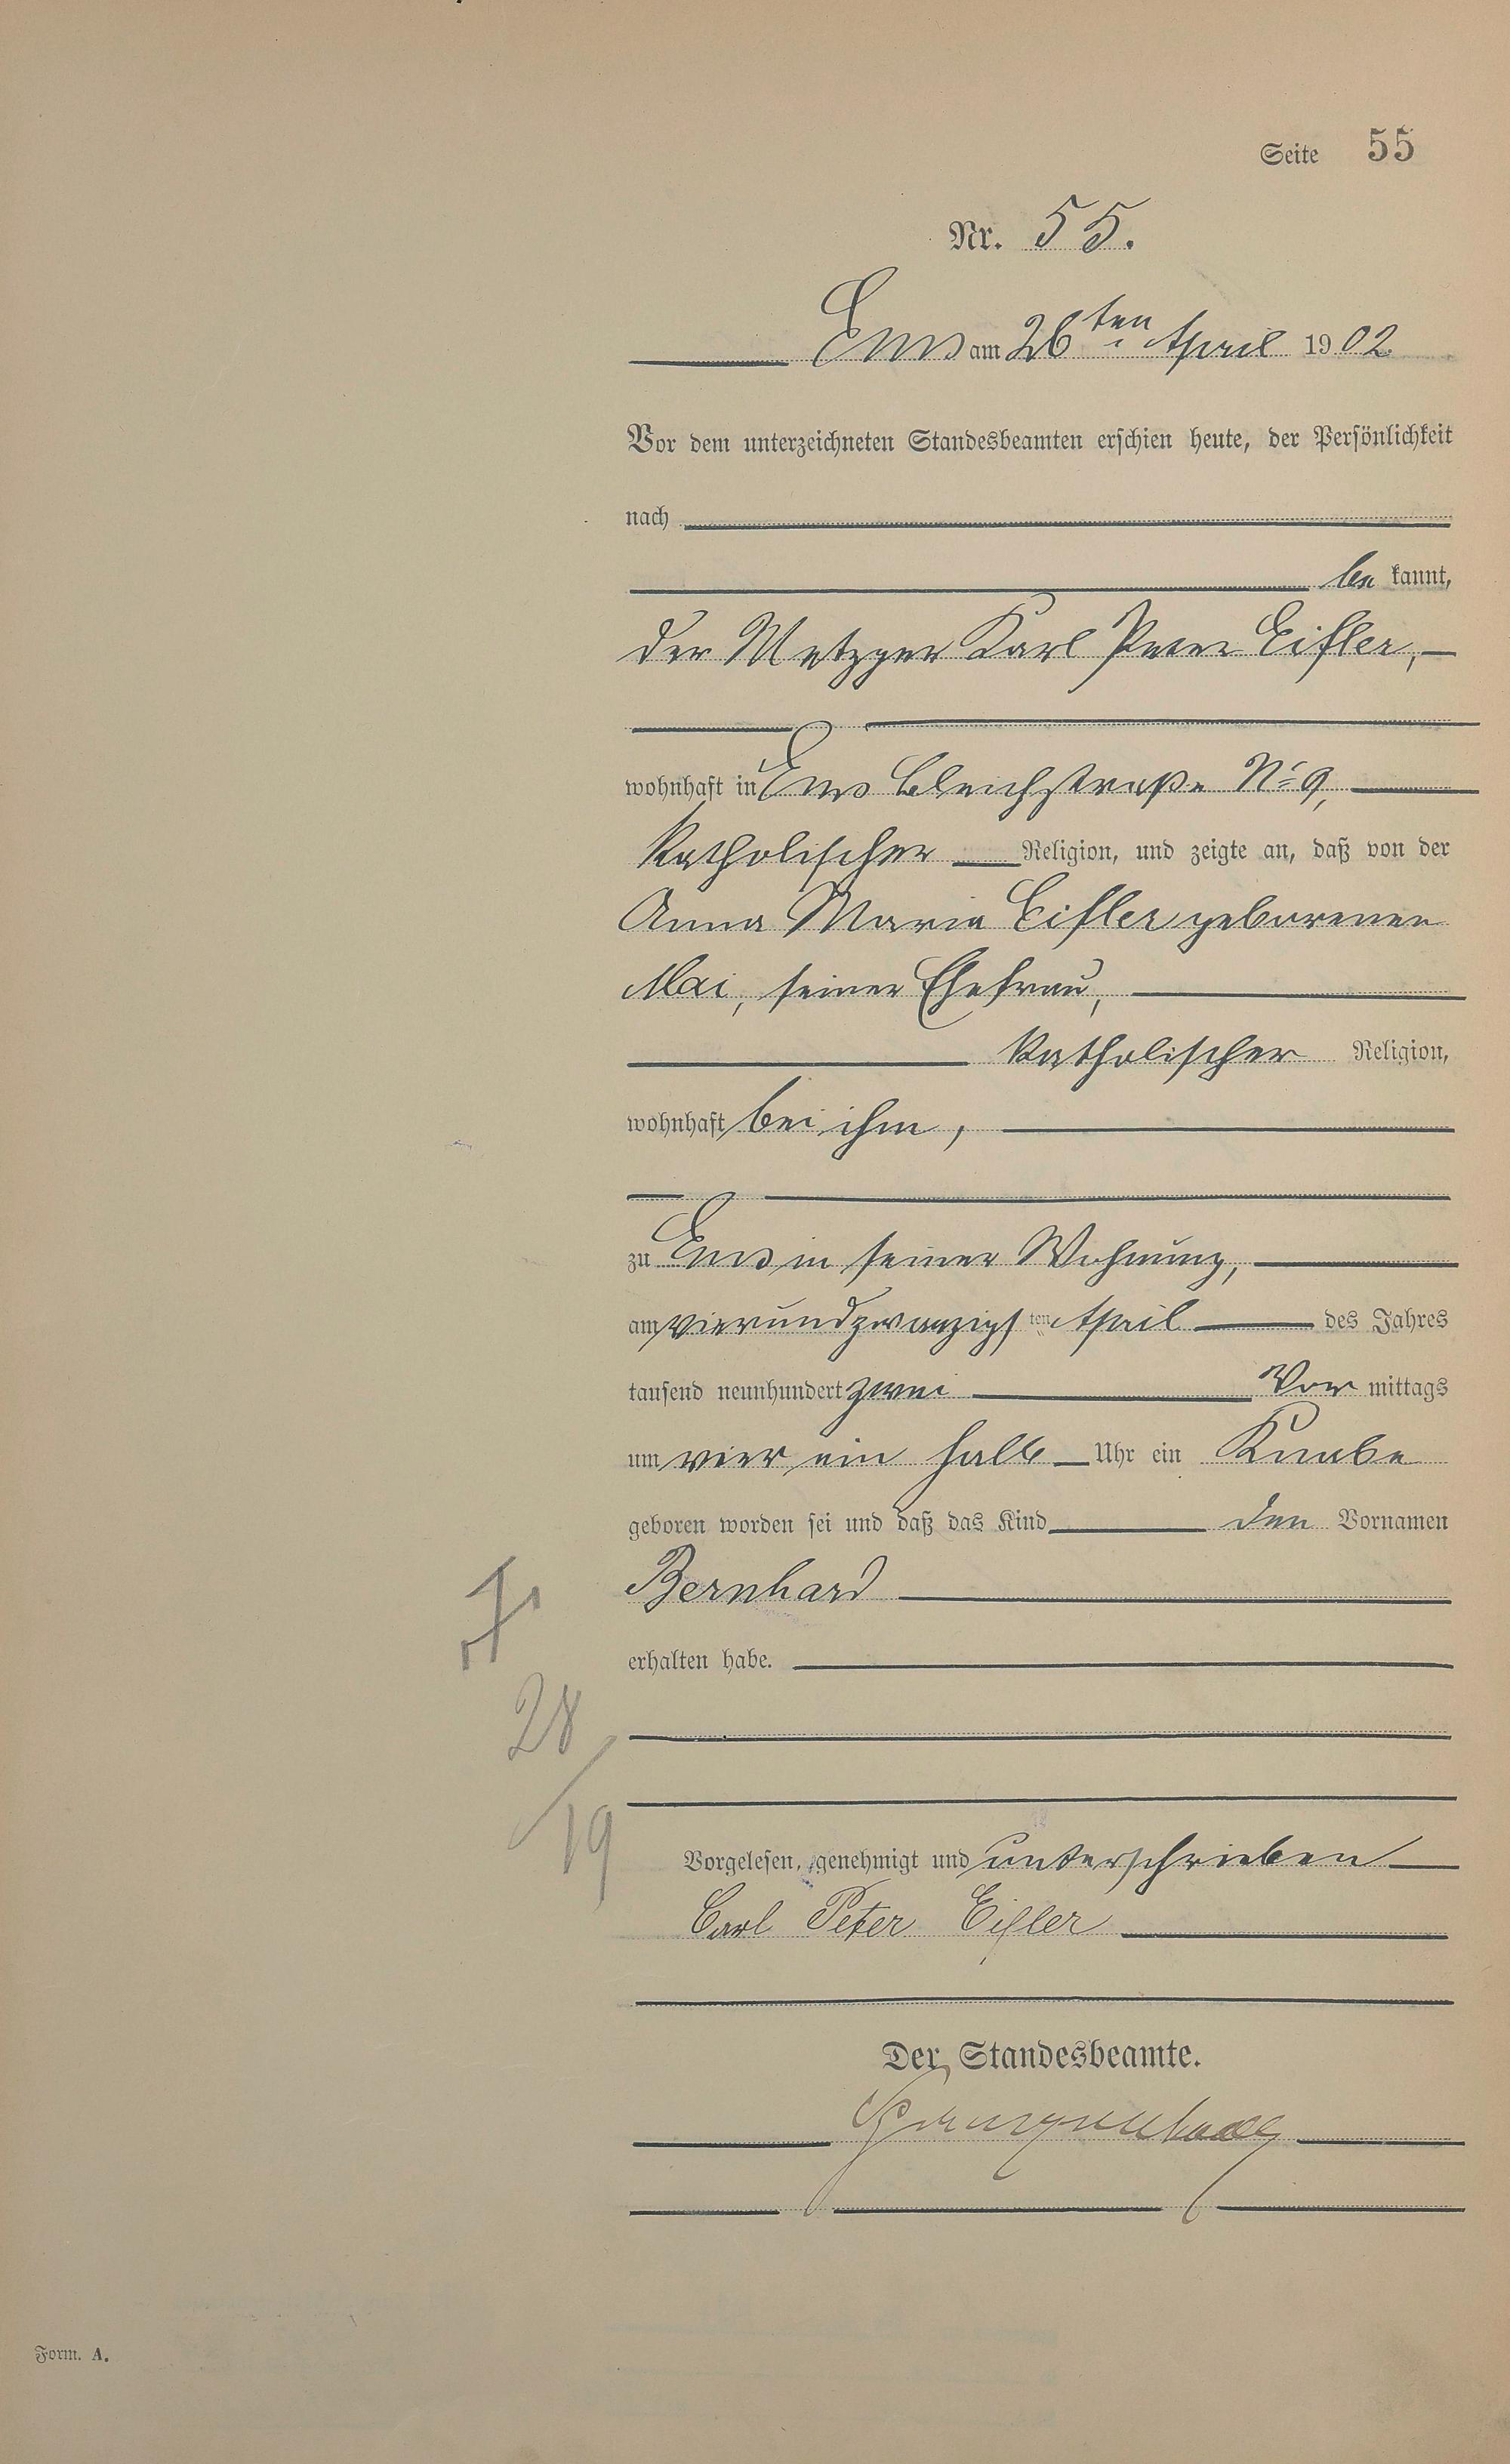 Seite 55
Nr. 55.
Ems am 26ten April 1902.
Vor dem unterzeichneten Standesbeamten erschien heute, der Persönlichkeit
nach
be kannt,
der Metzger Karl Peter Eifler,
wohnhaft in Ems Bleichstraße No 9,
katholischer Religion, und zeigte an, daß von der
Anna Maria Eifler geborenen
Mai, seiner Ehefrau,
katholischer Religion,
wohnhaft bei ihm,
zu Ems in seiner Wohnung,
am vierundzwanzigsten April des Jahres
tausend neunhundert zwei Vor mittags
um vier ein halb Uhr ein Knabe
geboren worden sei und daß das Kind den Vornamen
Bernhard
erhalten habe.
28
/19
Vorgelesen, genehmigt und unterschrieben
Carl Peter Eifler
Der Standesbeamte.
Form. A.